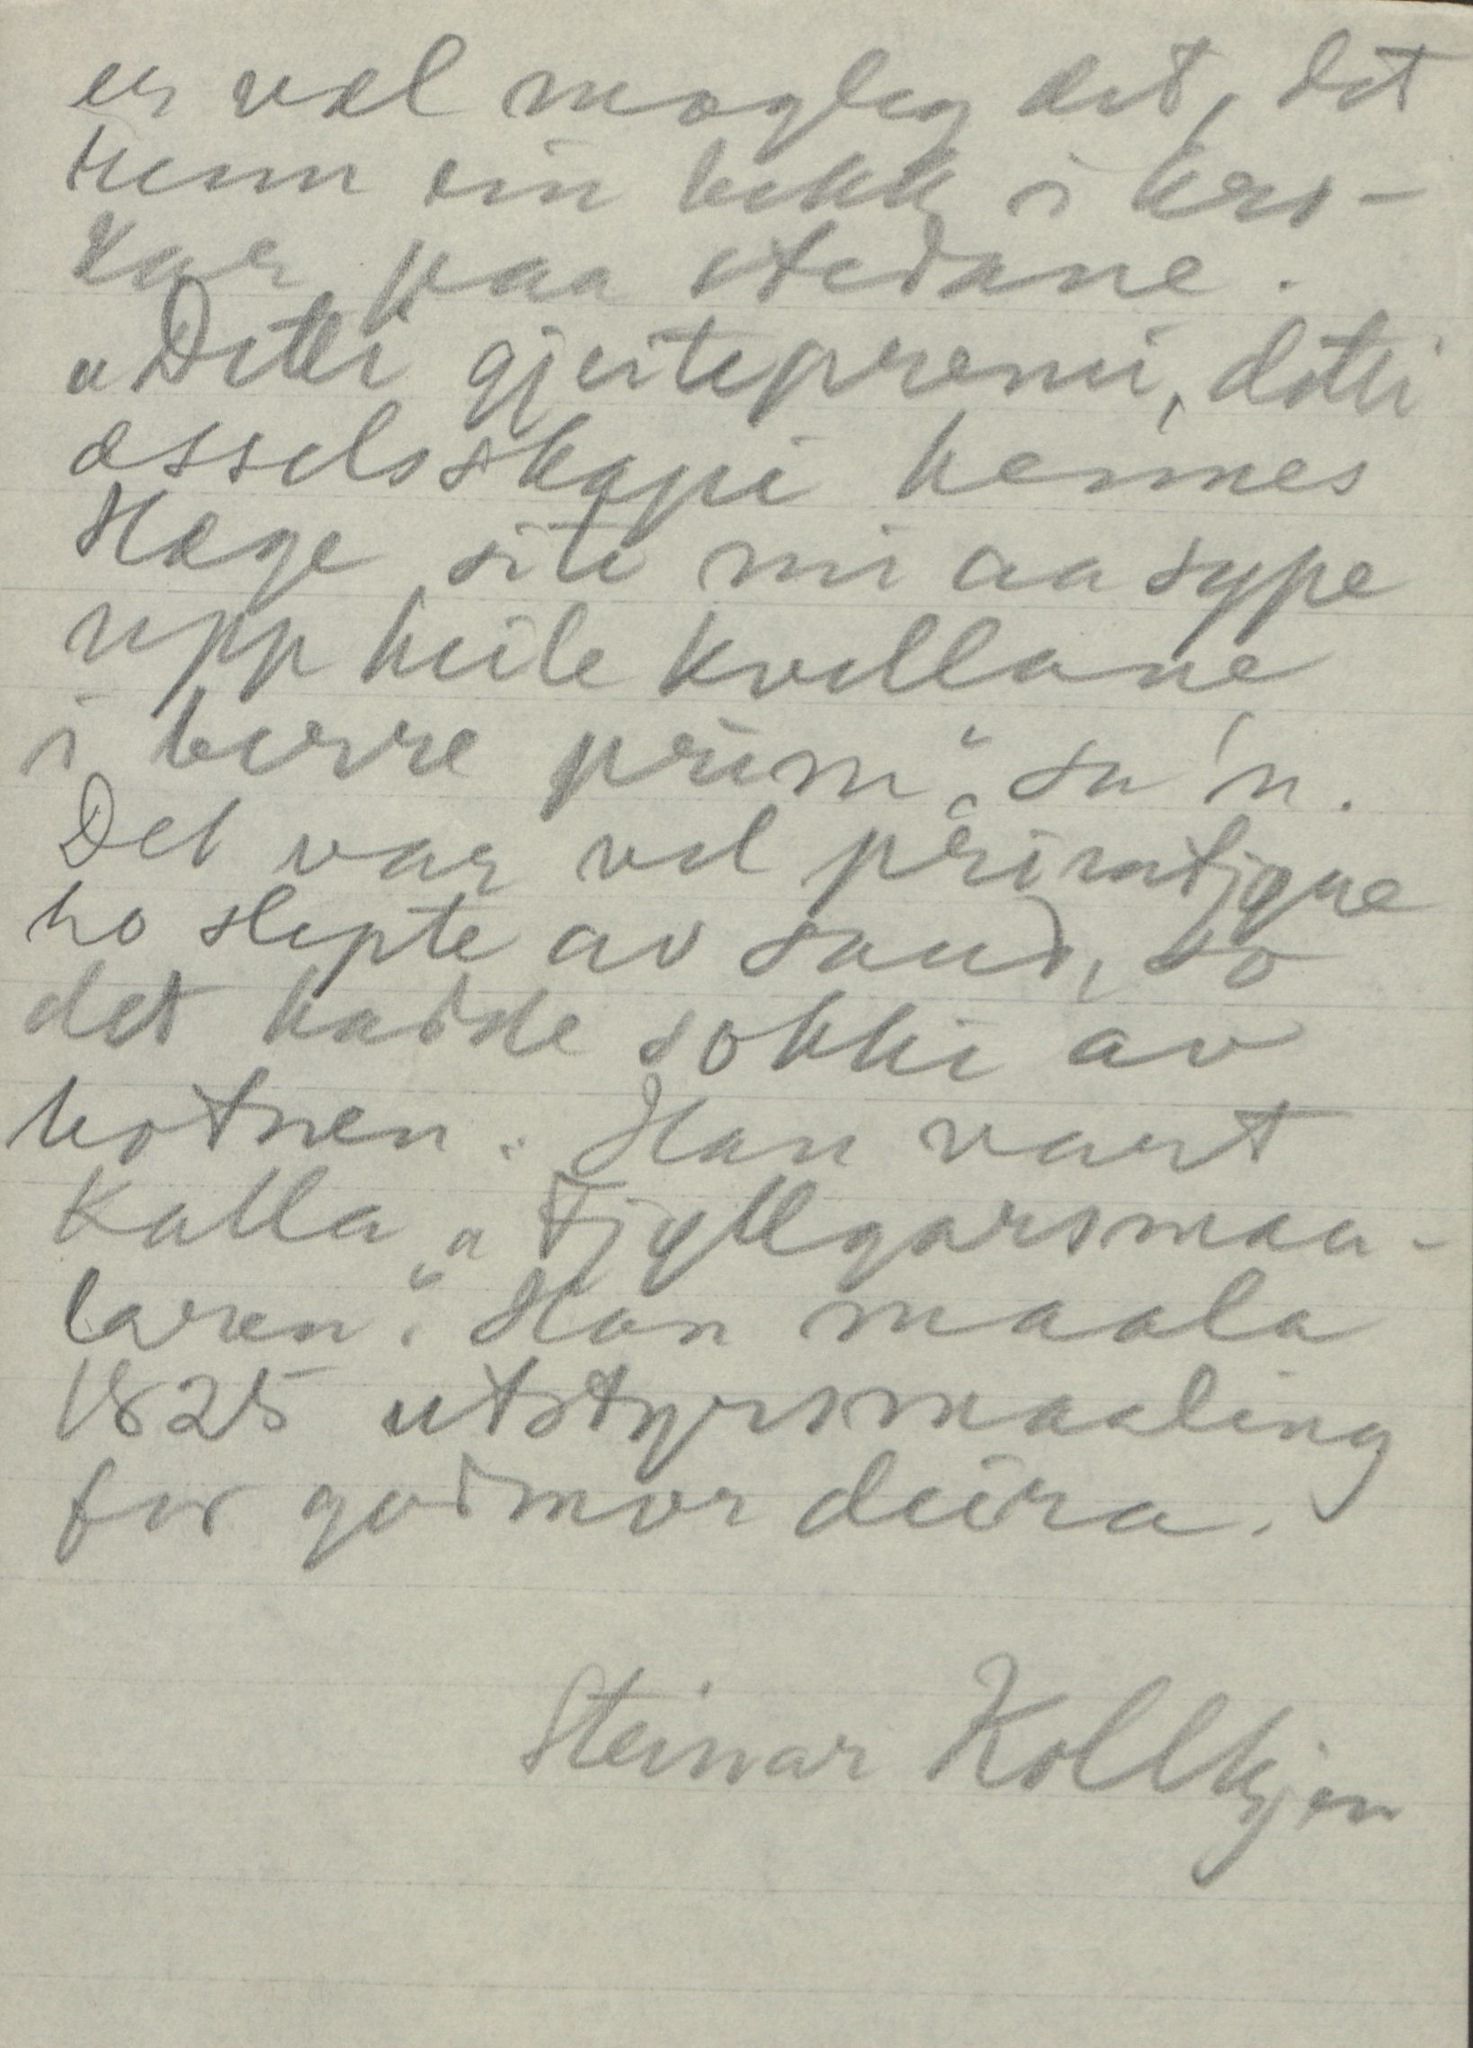 er vel mogleg det, det
renn ein bekk i kro-
kar paa stedane.
"Detti gjeiteprimi, detti
asselsskapi hennes
Hæge, siti mi aa sype
upp heile kvellane
i berre prim", sa'n.
Det var vel primtjyne
ho slepte av saud, so
det hadde sokki av
botnen. Han vart
kalla "Fjyllgarsmaa-
laren". Han maala
1825 utstyrsmaaling
for godmor deira.
Steinar Kollkjen